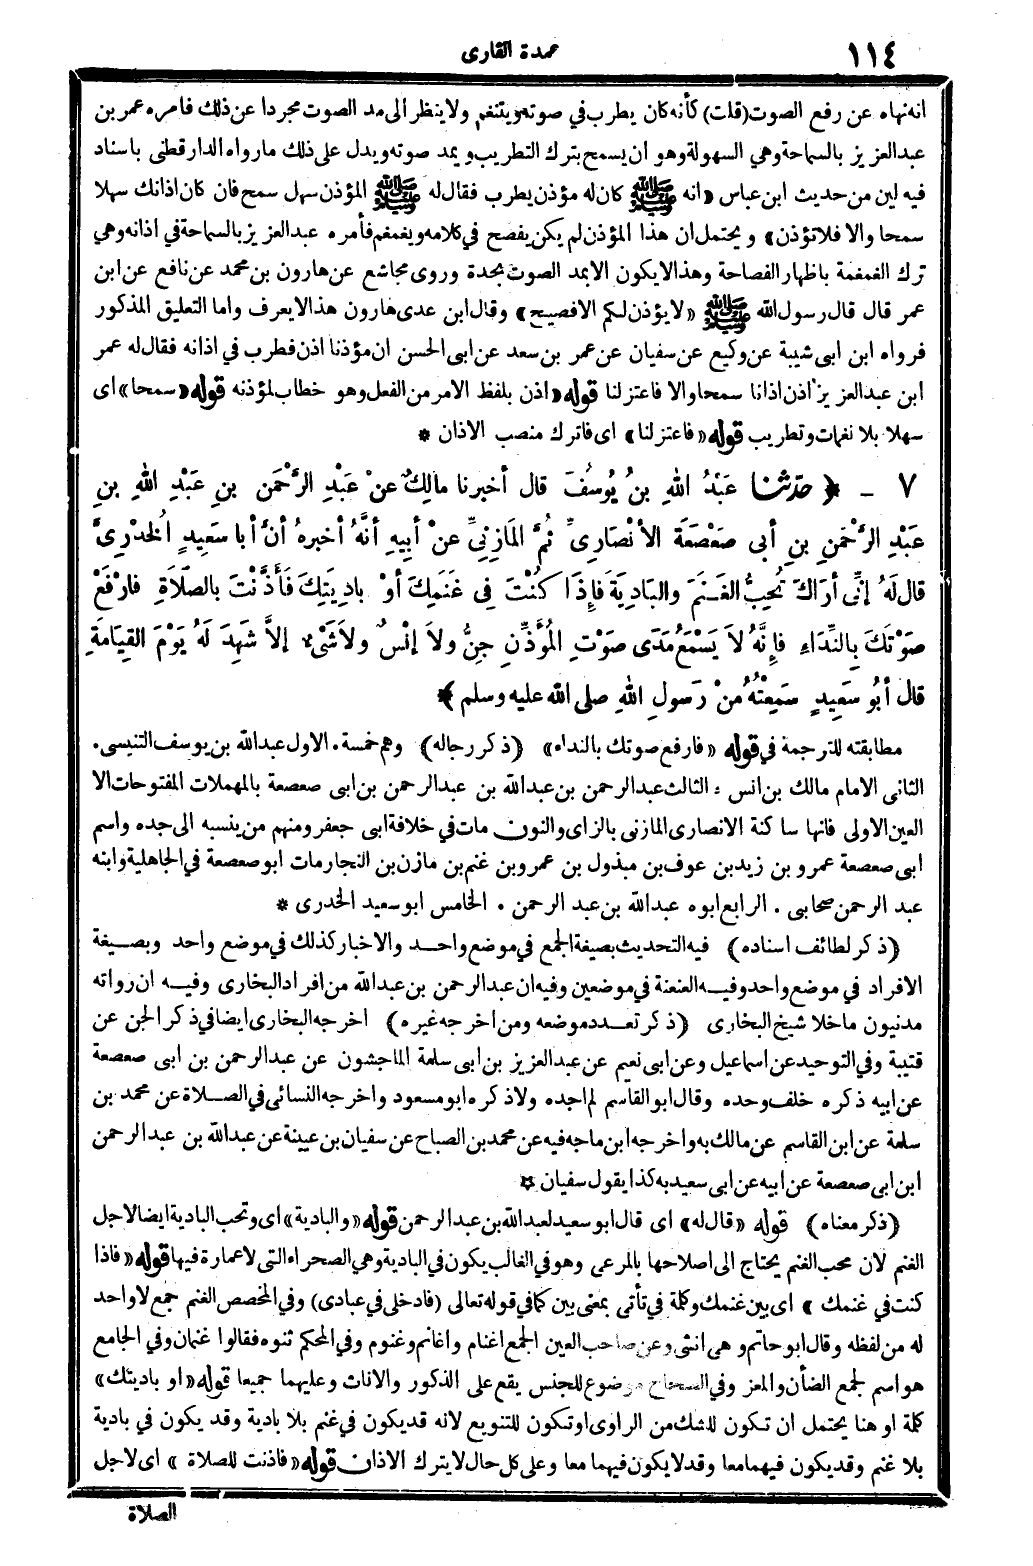 ١١٤
عمدة القارى
انه نهاه عن رفع الصوت (قلت) كأنه كان يطرب في صوته ويتنغم ولا ينظر الى مد الصوت مجردا عن ذلك فامره عمر بن
عبد العزيز بالسماحة وهي السهولة وهو ان يسمح بترك التطريب ويمد صوته ويدل على ذلك ما رواه الدار قطنى باسناد
فيه لين من حديث ابن عباس «انه ﷺ كان له مؤذن يطرب فقال له ﷺ المؤذن سهل سمح فان كان اذانك سهلا
سمحا والا فلا تؤذن» ويحتمل ان هذا المؤذن لم يكن يفصح في كلامه ويغمغم فأمره عبد العزيز بالسماحة في اذانه وهي
ترك الغمغمة باظهار الفصاحة وهذا لا يكون الا بمد الصوت بحدة وروى مجاشع عن هارون بن محمد عن نافع عن ابن
عمر قال قال رسول الله ﷺ «لا يؤذن لكم الا فصيح» وقال ابن عدى هارون هذا لا يعرف واما التعليق المذكور
فرواه ابن ابى شيبة عن وكيع عن سفيان عن عمر بن سعد عن ابى الحسن ان مؤذنا اذن فطرب في اذانه فقال له عمر
ابن عبد العزيز اذن اذانا سمحا والا فاعتزلنا قوله «اذن بلفظ الامر من الفعل وهو خطاب لمؤذنه قوله «سمحا» اى
سهلا بلا نغمات وتطريب قوله «فاعتزلنا» اى فاترك منصب الاذان *
٧ ـ ﴿ حدّثنا عَبْدُ اللهِ بنُ يُوسُفَ قال أخبرنا مالِكٌ عنْ عَبْدِ الرَّحْمَنِ بنِ عَبْدِ اللهِ بنِ
عَبْدِ الرَّحْمَنِ بنِ أبى صَعْصَعَةَ الأنْصَارِىِّ ثُمَّ المَازِنِيِّ عنْ أبِيهِ أنَّهُ أخبرهُ أنَّ أبا سَعِيدٍ الُخدْرِىَّ
قال لَهُ إنِّى أرَاكَ تُحِبُّ الغَنَمَ والبَادِيَةَ فَإِذَا كُنْتَ فِى غَنَمِكَ أوْ بادِيَتِكَ فَأَذَّنْتَ بالصَّلَاةِ فارْفَعْ
صَوْتَكَ بِالنِّدَاءِ فإِنَّهُ لاَ يَسْمَعُ مَدَى صَوْتِ المُؤَذِّنِ جِنٌّ ولاَ إنْسٌ ولاَ شَىْءٌ إلاَّ شَهِدَ لَهُ يَوْمَ القِيَامَةِ
قال أبُو سَعِيدٍ سَمِعْتُهُ منْ رَسولِ اللهِ صلى الله عليه وسلم ﴾
مطابقته للترجمة في قوله «فارفع صوتك بالنداء» (ذكر رجاله) وهم خمسة. الاول عبد الله بن يوسف التنيسى.
الثانى الامام مالك بن انس : الثالث عبد الرحمن بن عبد الله بن عبد الرحمن بن ابى صعصعة بالمهملات المفتوحات الا
العين الاولى فانها ساكنة الانصارى المازنى بالزاى والنون مات في خلافة ابى جعفر ومنهم من ينسبه الى جده واسم
ابى صعصعة عمرو بن زيد بن عوف بن مبذول بن عمرو بن غنم بن مازن بن النجار مات ابو صعصعة في الجاهلية وابنه
عبد الرحمن صحابى . الرابع ابوه عبد الله بن عبد الرحمن . الخامس ابو سعيد الخدرى *
(ذكر لطائف اسناده) فيه التحديث بصيغة الجمع في موضع واحد والاخبار كذلك في موضع واحد وبصيغة
الافراد في موضع واحد وفيه العنعنة في موضعين وفيه ان عبد الرحمن بن عبد الله من افراد البخارى وفيه ان رواته
مدنيون ما خلا شيخ البخارى (ذكر تعدد موضعه ومن اخرجه غيره) اخرجه البخارى ايضا في ذكر الجن عن
قتيبة وفي التوحيد عن اسماعيل وعن ابى نعيم عن عبد العزيز بن ابى سلمة الماجشون عن عبد الرحمن بن ابى صعصعة
عن ابيه ذكره خلف وحده وقال ابو القاسم لم اجده ولا ذكره ابو مسعود واخرجه النسائى في الصلاة عن محمد بن
سلمة عن ابن القاسم عن مالك به واخرجه ابن ماجه فيه عن محمد بن الصباح عن سفيان بن عيينة عن عبد الله بن عبد الرحمن
ابن ابى صعصعة عن ابيه عن ابى سعيد به كذا يقول سفيان *
(ذكر معناه) قوله «قال له» اى قال ابو سعيد لعبد الله بن عبد الرحمن قوله «والبادية» اى وتحب البادية ايضا لاجل
الغنم لان محب الغنم يحتاج الى اصلاحها بالمرعى وهو في الغالب يكون في البادية وهي الصحراء التى لا عمارة فيها قوله «فاذا
كنت في غنمك» اى بين غنمك وكلمة في تأتى بمعنى بين كما في قوله تعالى (فادخلى في عبادى) وفي المخصص الغنم جمع لا واحد
له من لفظه وقال ابو حاتم وهى انثى وعن صاحب العين الجمع اغنام واغانم وغنوم وفي المحكم ثنوه فقالوا غنمان وفي الجامع
هو اسم لجمع الضأن والمعز وفي الصحاح موضوع للجنس يقع على الذكور والاناث وعليهما جميعا قوله «او باديتك»
كلمة او هنا يحتمل ان تكون للشك من الراوى او تكون للتنويع لانه قد يكون في غنم بلا بادية وقد يكون في بادية
بلا غنم وقد يكون فيهما معا وقد لا يكون فيهما معا وعلى كل حال لا يترك الاذان قوله «فاذنت للصلاة» اى لاجل
الصلاة